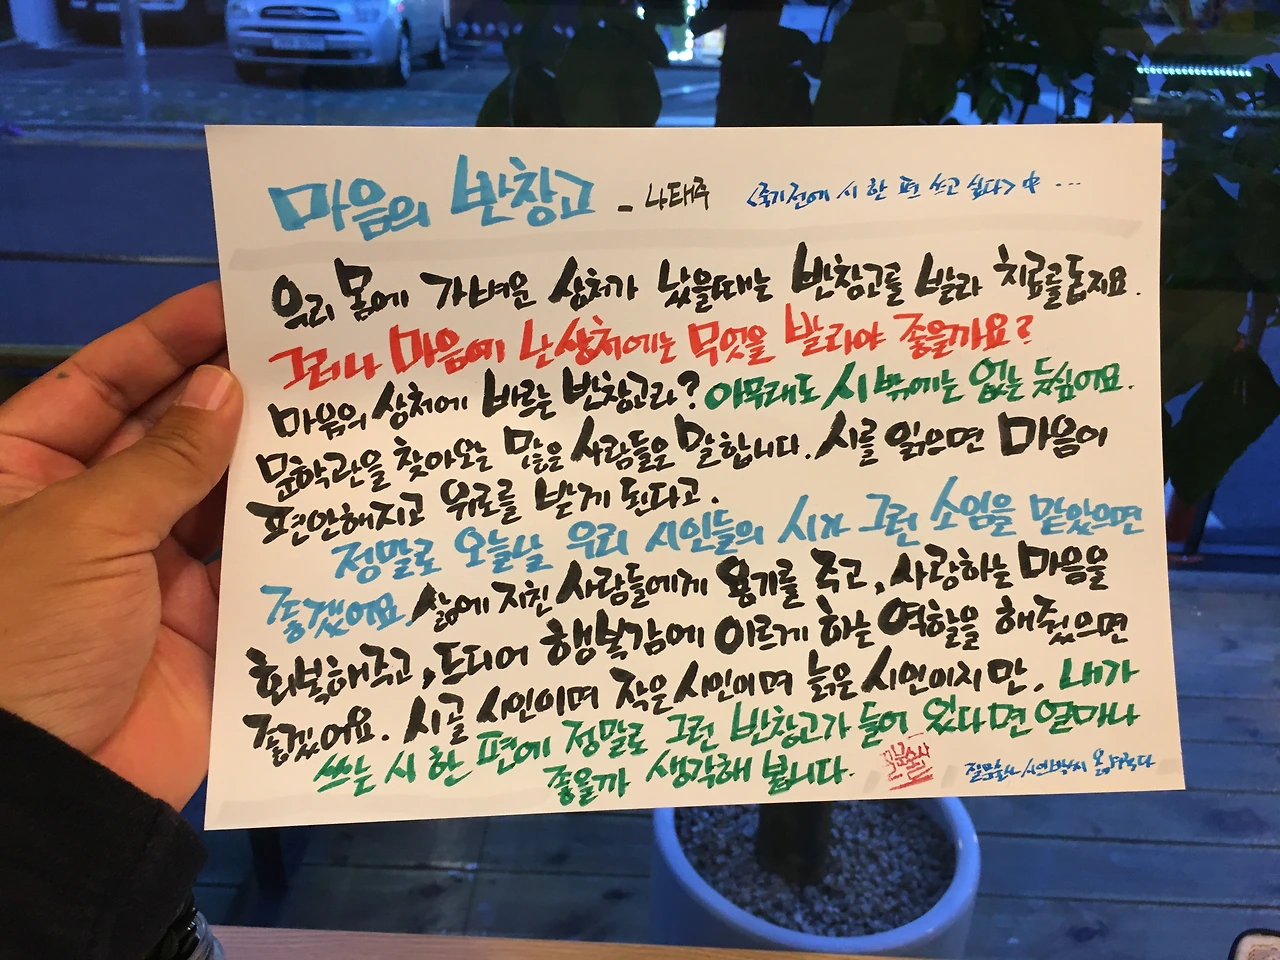 마음의 반창고 - 나태주 <죽기전에 시 한 편 쓰고 싶다> 中 ...
우리 몸에 가벼운 상처가 났을때는 반창고를 발라 치료를 돕지요.
그러나 마음에 난 상처에는 무엇을 발라야 좋을까요?
마음의 상처에 바르는 반창고라? 아무래도 시 밖에는 없는 듯싶어요.
문학관을 찾아오는 많은 사람들은 말합니다. 시를 읽으면 마음이
편안해지고 위로를 받게 된다고.
정말로 오늘날 우리 시인들의 시가 그런 소임을 맡았으면
좋겠어요. 삶에 지친 사람들에게 용기를 주고, 사랑하는 마음을
회복해주고, 드디어 행복감에 이르게 하는 역할을 해줬으면
좋겠어요. 시골 시인이며 작은 시인이며 늙은 시인이지만, 내가
쓰는 시 한 편에 정말로 그런 반창고가 들어 있다면 얼마나
좋을까 생각해 봅니다.
질문술사